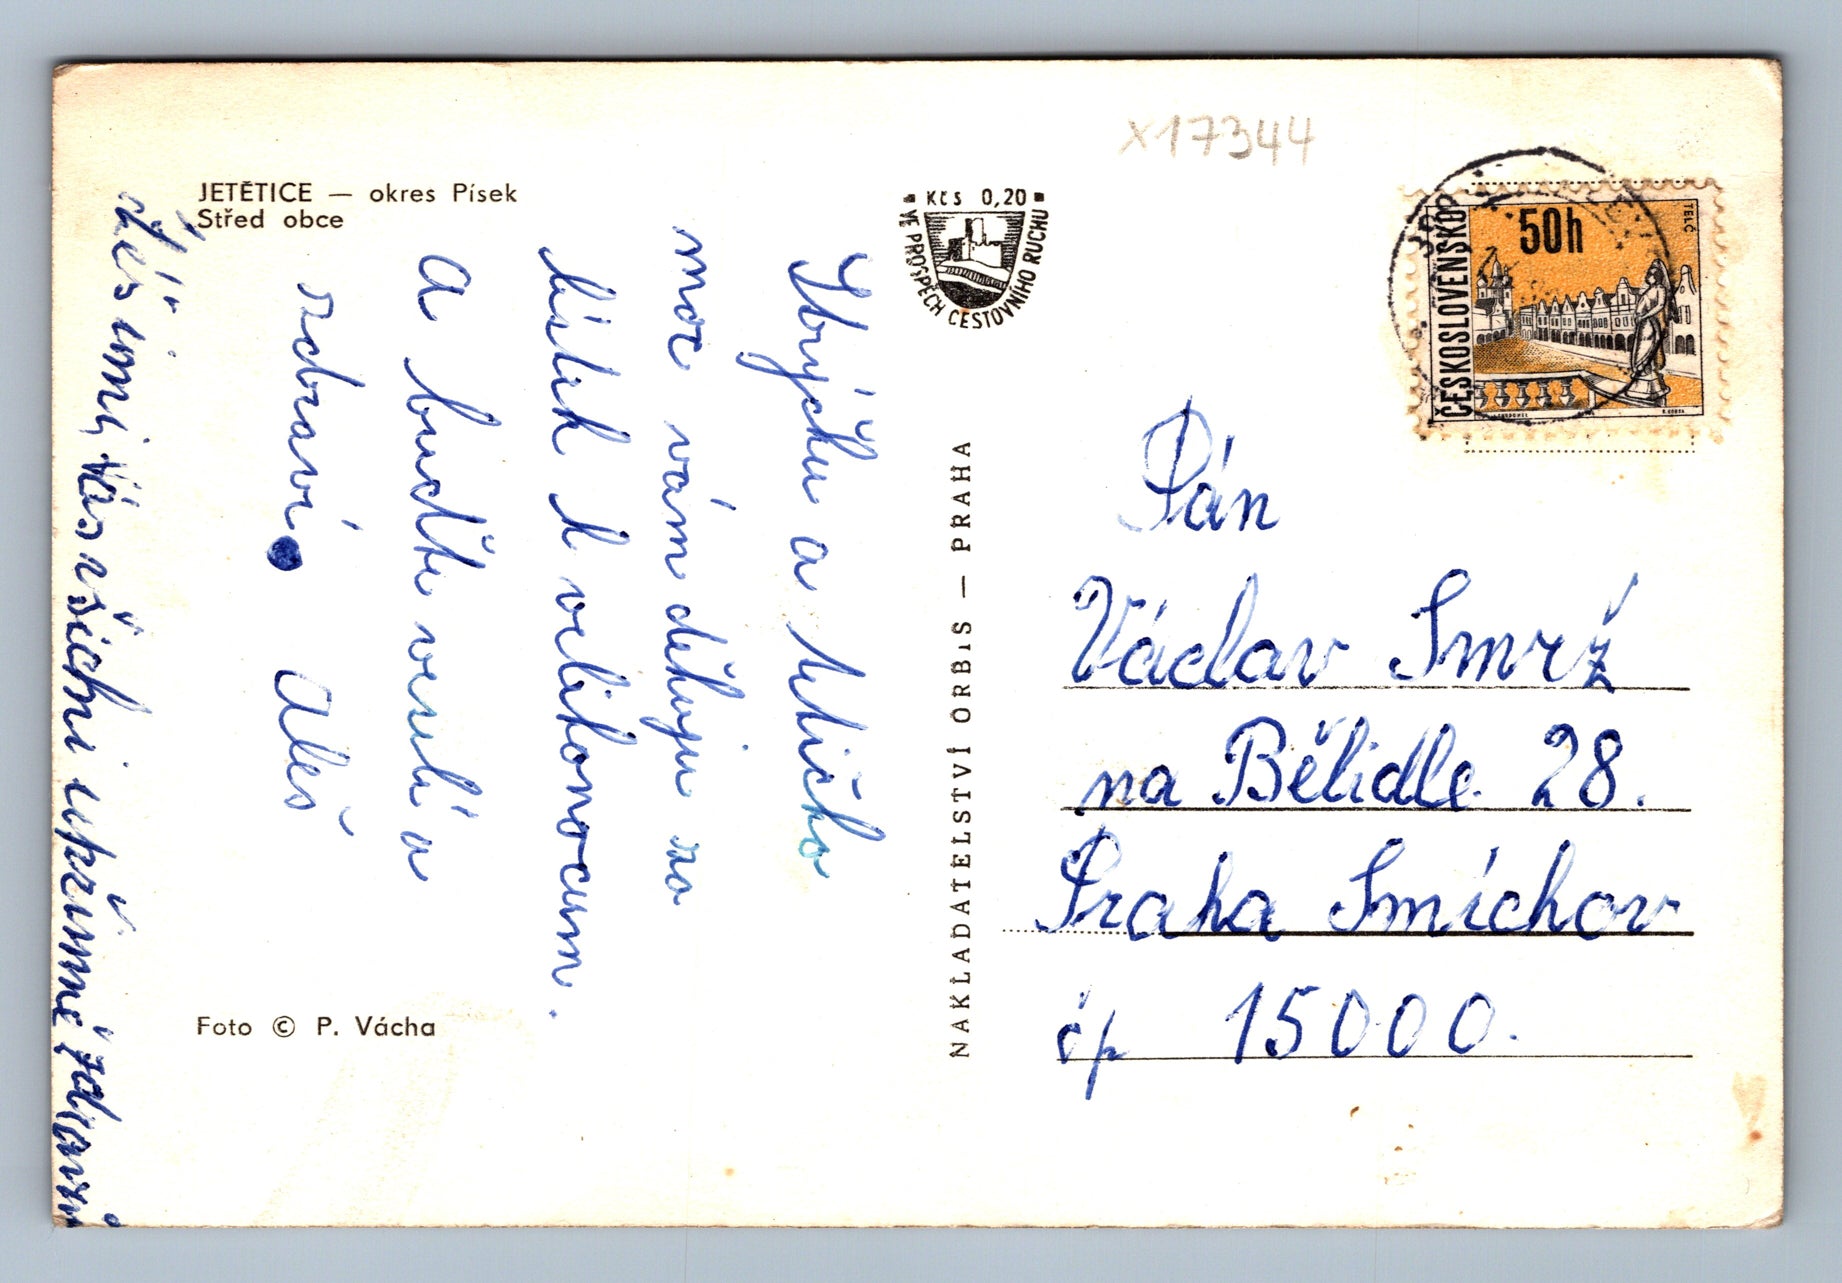 x17344
JETĚTICE — okres Písek
Střed obce
Kčs 0,20
VE PROSPĚCH CESTOVNÍHO RUCHU
ČESKOSLOVENSKO
50h
TELČ
Strýčku a tetičko
moc vám děkuju za
lístek k velikonocum.
A buďte veselí a
zdraví. Aleš
vás všichni upřímně zdraví
Foto © P. Vácha
NAKLADATELSTVÍ ORBIS — PRAHA
Pán
Václav Smrž
na Bělidle 28.
Praha Smíchov
čp 15000.